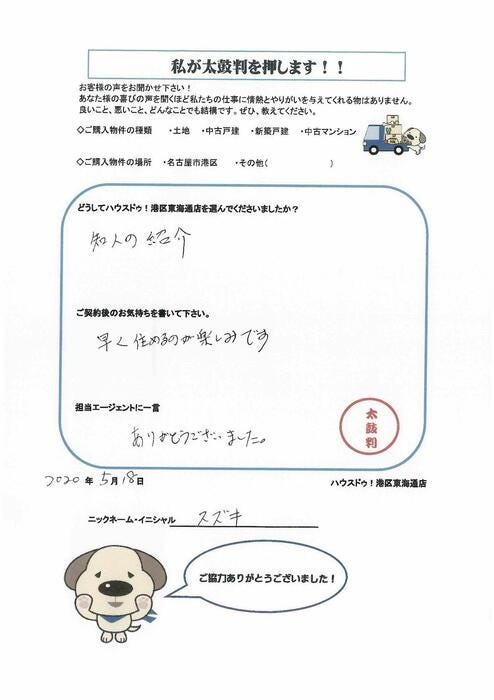 私が太鼓判を押します！！
お客様の声をお聞かせ下さい！
あなた様の喜びの声を聞くほど私たちの仕事に情熱とやりがいを与えてくれる物はありません。
良いこと、悪いこと、どんなことでも結構です。ぜひ、教えてください。
◇ご購入物件の種類　・土地　・中古戸建　・新築戸建　・中古マンション
◇ご購入物件の場所　・名古屋市港区　・その他（　　　　　　）
どうしてハウスドゥ！港区東海通店を選んでくださいましたか？
知人の紹介
ご契約後のお気持ちを書いて下さい。
早く住めるのが楽しみです
担当エージェントに一言
ありがとうございました。
太鼓判
2020年5月18日
ハウスドゥ！港区東海通店
ニックネーム・イニシャル　スズキ
ご協力ありがとうございました！